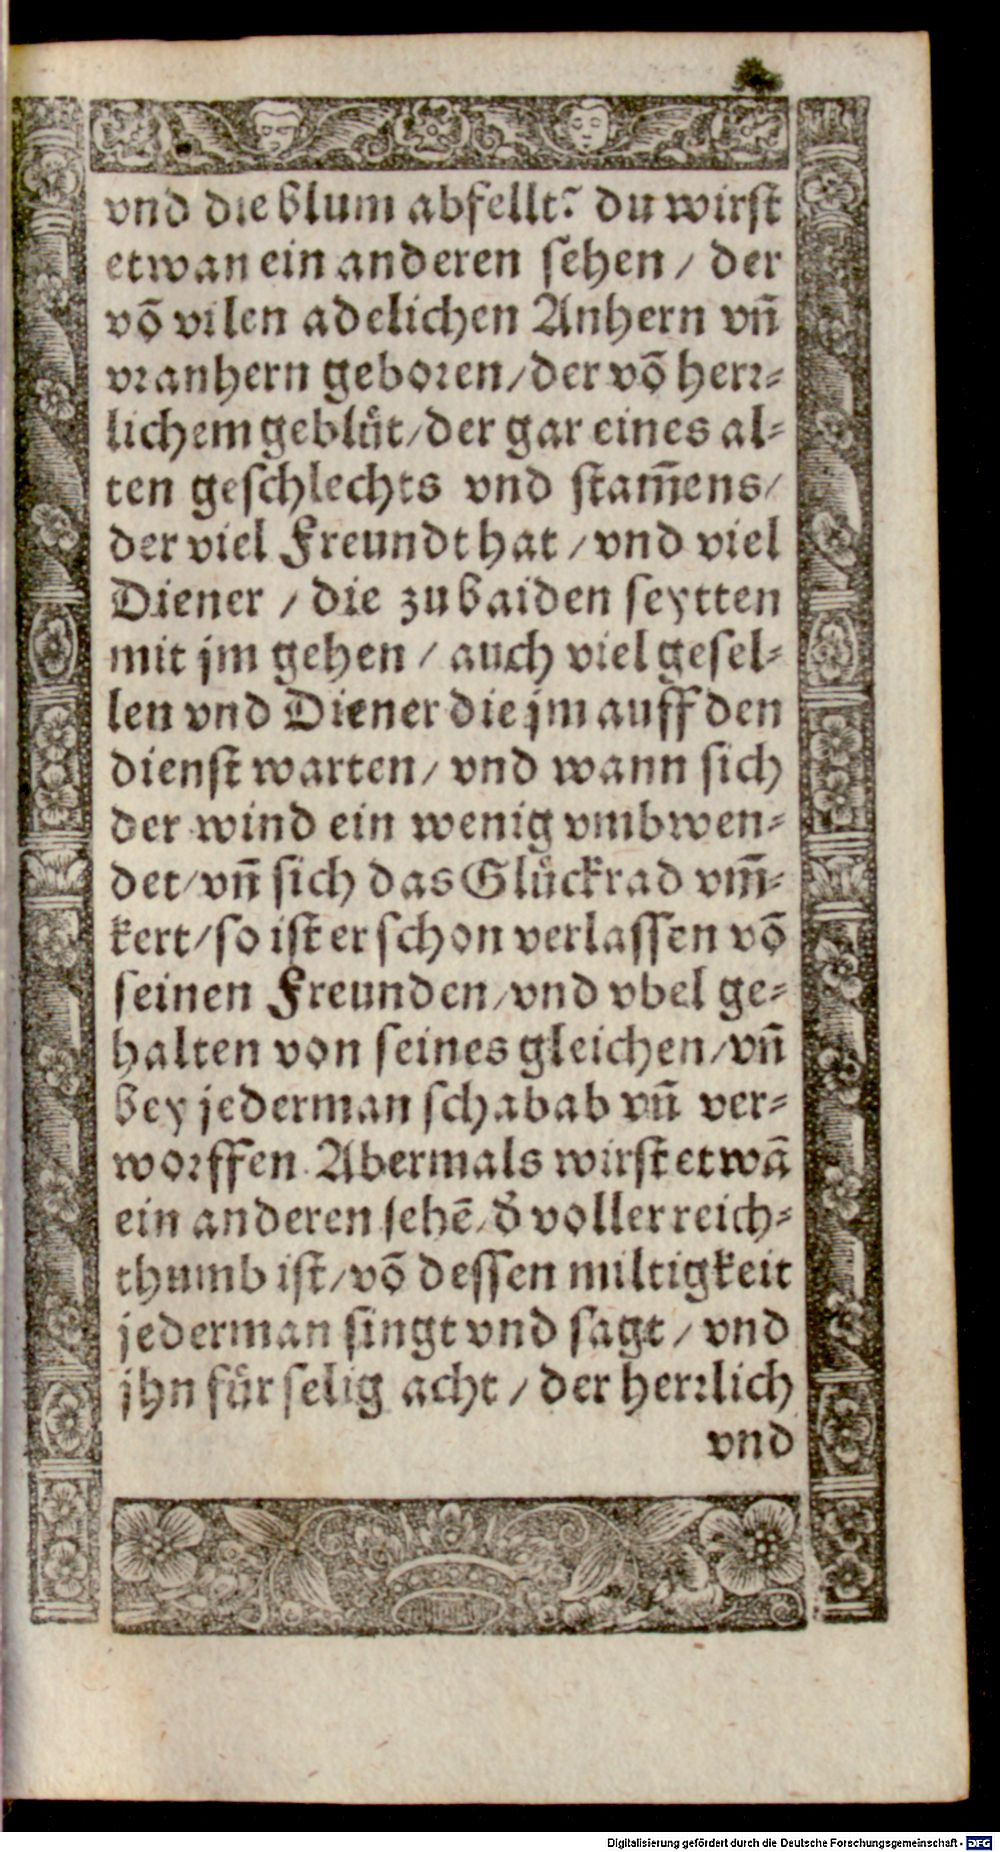 vnd die blum abfellt? du wirst
etwan ein anderen sehen / der
võ vilen adelichen Anhern vñ
vranhern geboren / der võ herr-
lichem geblüt / der gar eines al-
ten geschlechts vnd stam̃ens /
der viel Freundt hat / vnd viel
Diener / die zu baiden seytten
mit jm gehen / auch viel gesel-
len vnd Diener die jm auff den
dienst warten / vnd wann sich
der wind ein wenig vmbwen-
det / vñ sich das Glückrad vm̃-
kert / so ist er schon verlassen võ
seinen Freunden / vnd vbel ge-
halten von seines gleichen / vñ
bey jederman schabab vñ ver-
worffen. Abermals wirst etwã
ein anderen sehẽ / d̃ voller reich-
thumb ist / võ dessen miltigkeit
jederman singt vnd sagt / vnd
jhn für selig acht / der herrlich
vnd
Digitalisierung gefördert durch die Deutsche Forschungsgemeinschaft - DFG